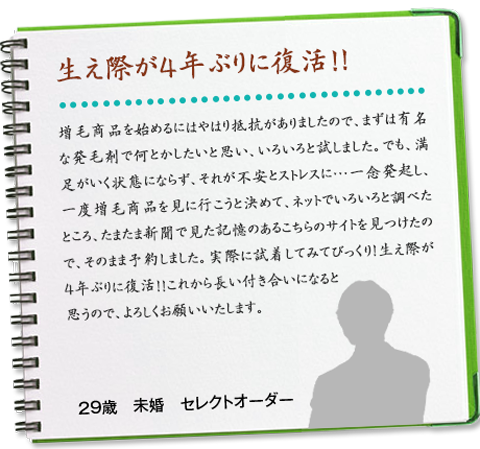 生え際が4年ぶりに復活!!
増毛商品を始めるにはやはり抵抗がありましたので、まずは有名
な発毛剤で何とかしたいと思い、いろいろと試しました。でも、満
足がいく状態にならず、それが不安とストレスに…一念発起し、
一度増毛商品を見に行こうと決めて、ネットでいろいろと調べた
ところ、たまたま新聞で見た記憶のあるこちらのサイトを見つけたの
で、そのまま予約しました。実際に試着してみてびっくり!生え際が
4年ぶりに復活!!これから長い付き合いになると
思うので、よろしくお願いいたします。
29歳 未婚 セレクトオーダー